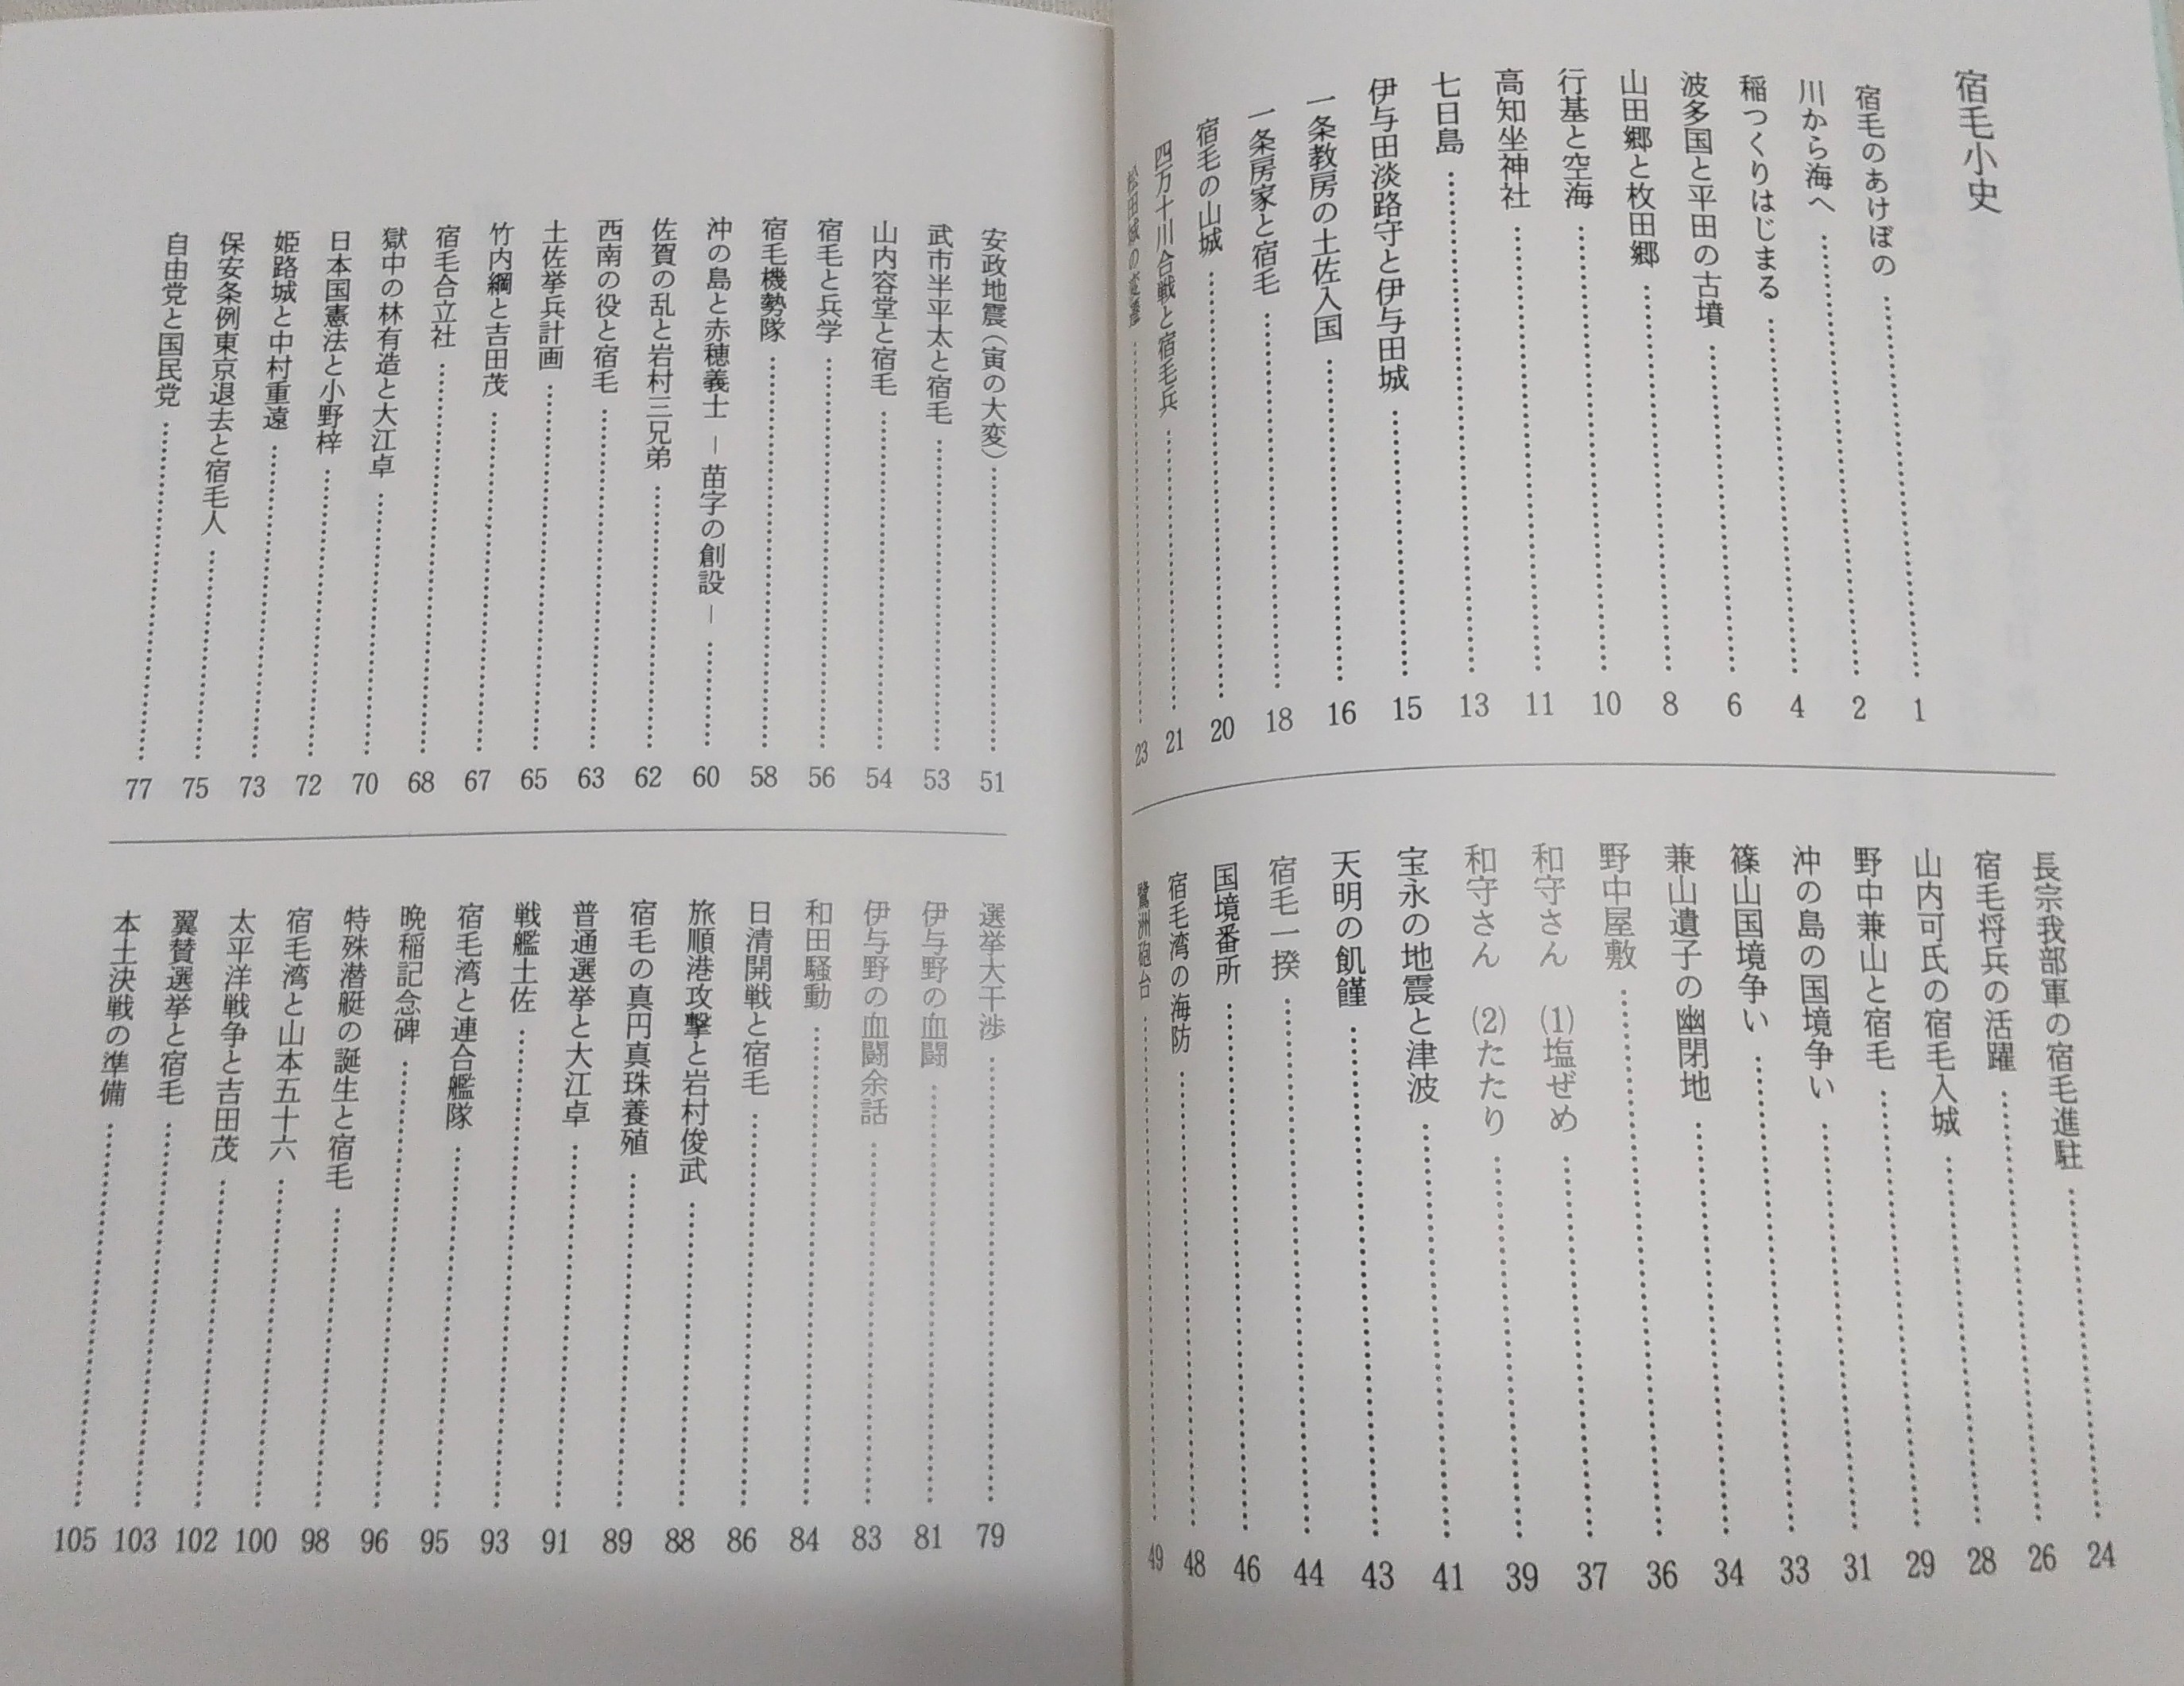 宿毛小史
宿毛のあけぼの 1
川から海へ 2
稲つくりはじまる 4
波多国と平田の古墳 6
山田郷と枚田郷 8
行基と空海 10
高知坐神社 11
七日島 13
伊与田淡路守と伊与田城 15
一条教房の土佐入国 16
一条房家と宿毛 18
宿毛の山城 20
四万十川合戦と宿毛兵 21
松田城の変遷 23
長宗我部軍の宿毛進駐 24
宿毛将兵の活躍 26
山内可氏の宿毛入城 28
野中兼山と宿毛 29
沖の島の国境争い 31
篠山国境争い 33
兼山遺子の幽閉地 34
野中屋敷 36
和守さん (1)塩ぜめ 37
和守さん (2)たたり 39
宝永の地震と津波 41
天明の飢饉 43
宿毛一揆 44
国境番所 46
宿毛湾の海防 48
鷺洲砲台 49
安政地震(寅の大変) 51
武市半平太と宿毛 53
山内容堂と宿毛 54
宿毛と兵学 56
宿毛機勢隊 58
沖の島と赤穂義士 ―苗字の創設― 60
佐賀の乱と岩村三兄弟 62
西南の役と宿毛 63
土佐挙兵計画 65
竹内綱と吉田茂 67
宿毛合立社 68
獄中の林有造と大江卓 70
日本国憲法と小野梓 72
姫路城と中村重遠 73
保安条例東京退去と宿毛人 75
自由党と国民党 77
選挙大干渉 79
伊与野の血闘 81
伊与野の血闘余話 83
和田騒動 84
日清開戦と宿毛 86
旅順港攻撃と岩村俊武 88
宿毛の真円真珠養殖 89
普通選挙と大江卓 91
戦艦土佐 93
宿毛湾と連合艦隊 95
晩稲記念碑 96
特殊潜艇の誕生と宿毛 98
宿毛湾と山本五十六 100
太平洋戦争と吉田茂 102
翼賛選挙と宿毛 103
本土決戦の準備 105